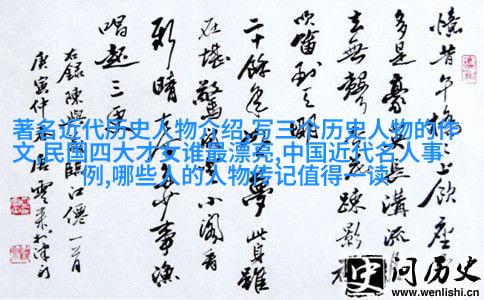 憶昔午橋上飲座
多是豪英長溝流
去無聲疎影
吹笛到
二十餘年夢此身雖
在堪驚小閣看
新晴事漁
唱起三更
右錄陳與臨江僊一首
庚寅仲春居雲
著名近代历史人物介绍,写三个历史人物的作
文,民国四大才女谁最漂亮,中国近代名人事
例,哪些人的人物传记值得一读
史问历史
www.wenlishi.cn